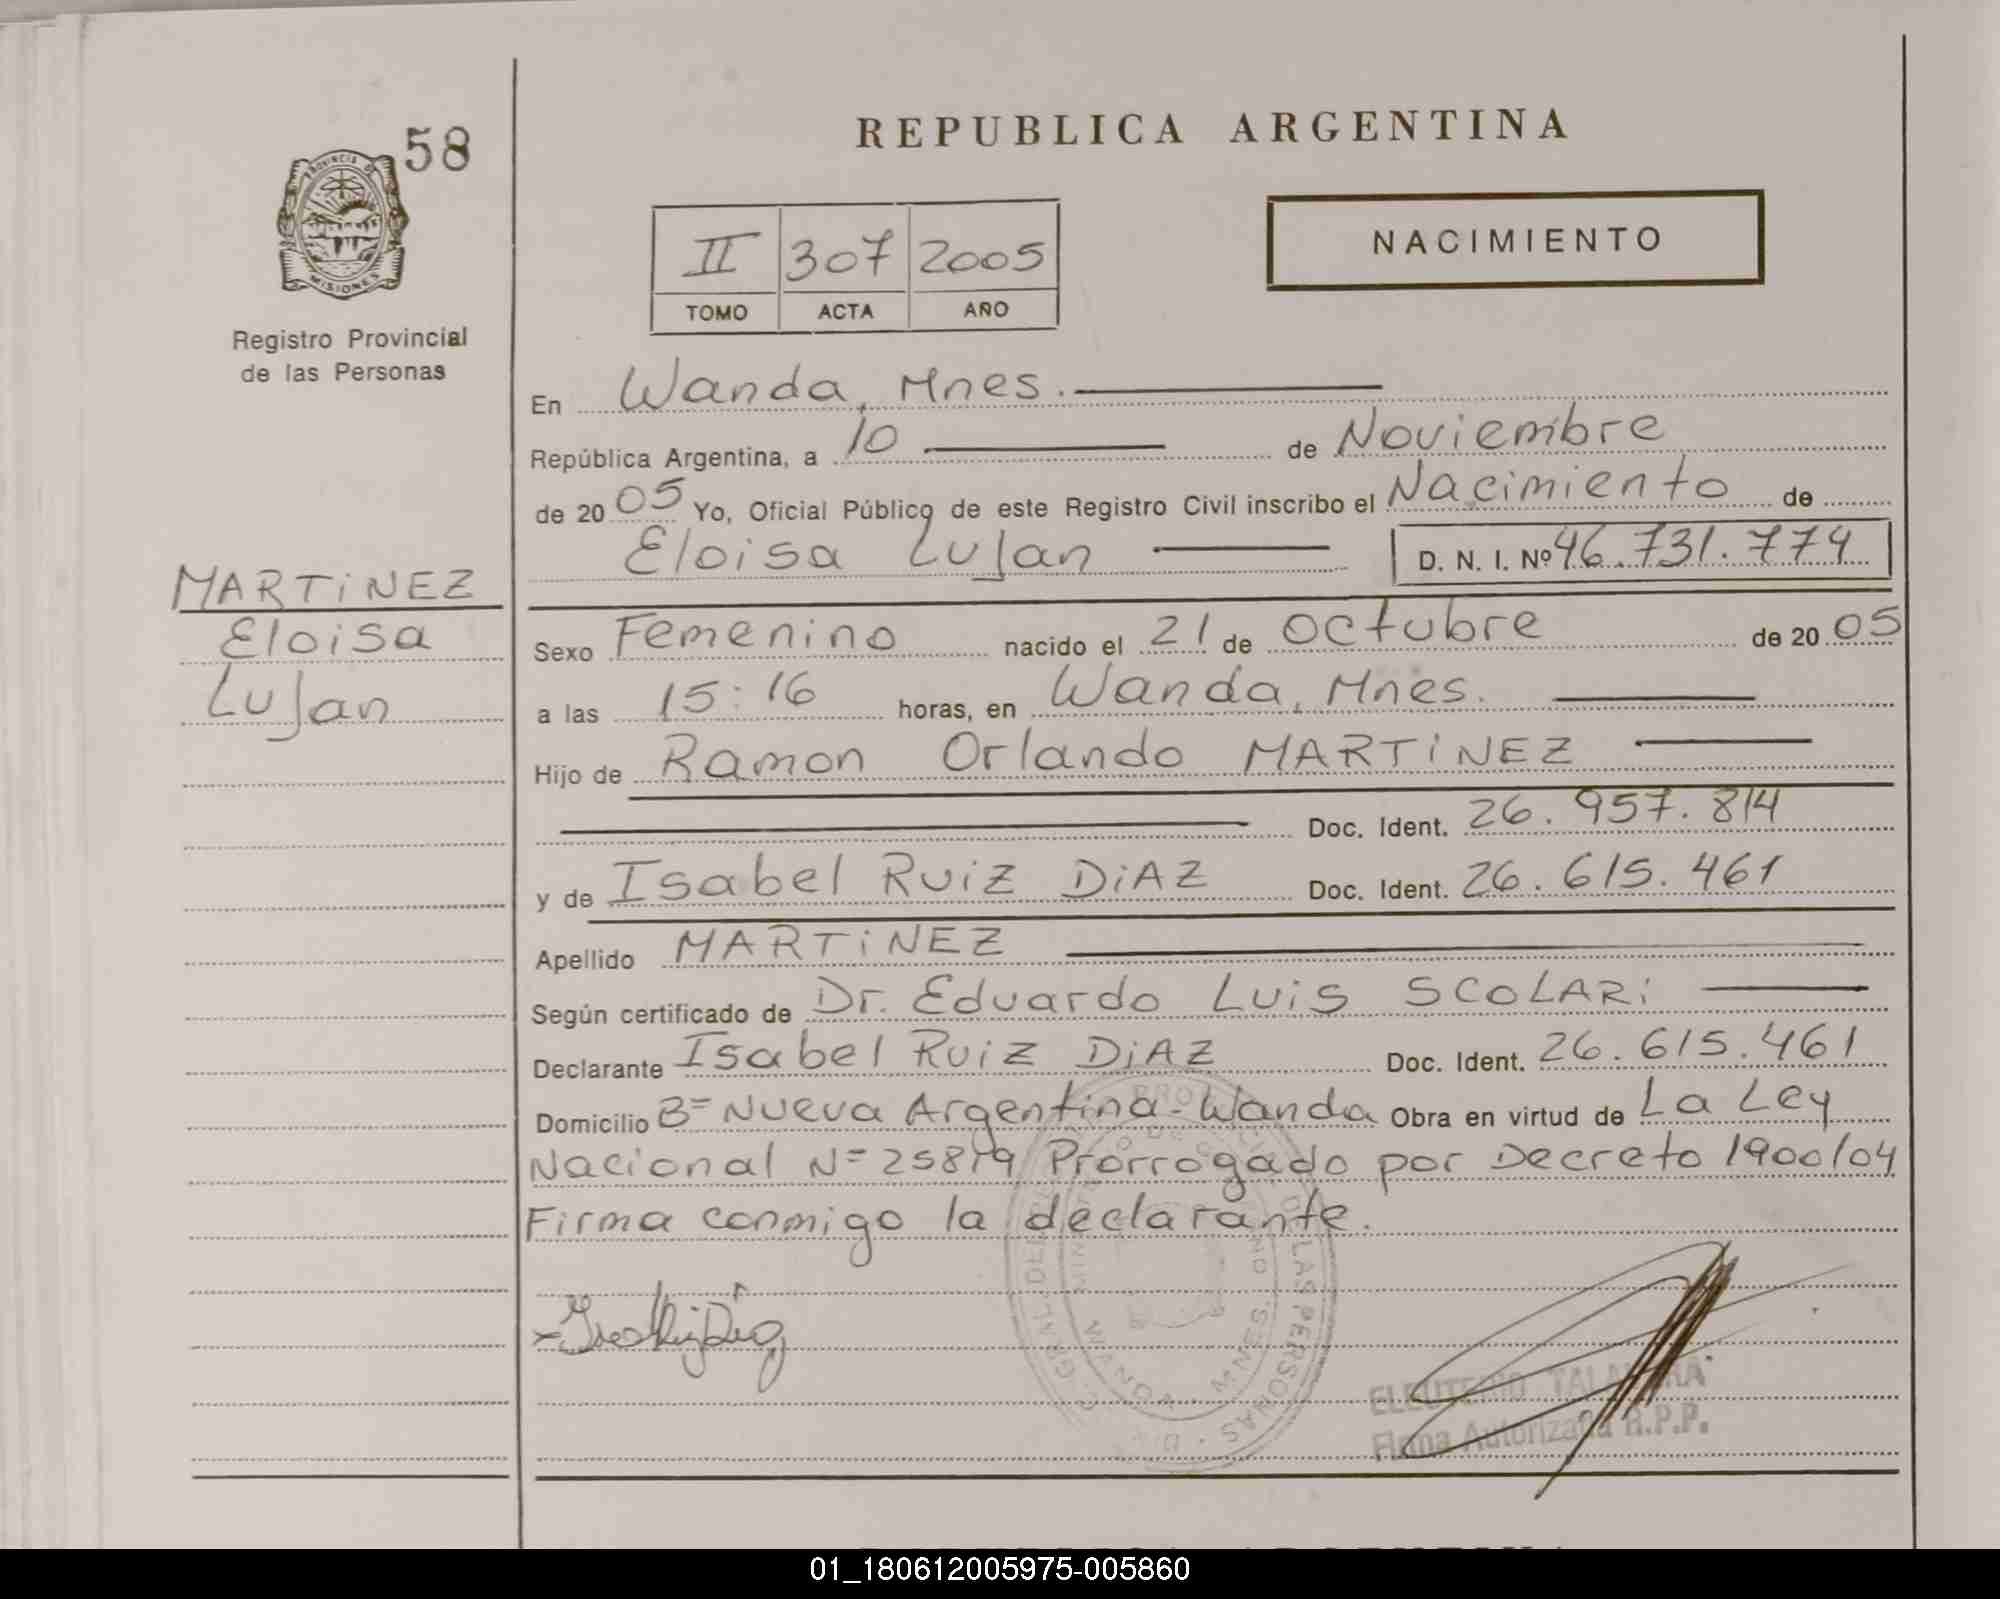 58
PROVINCIA DE
MISIONES
Registro Provincial
de las Personas
MARTiNEZ
Eloisa
Lujan
REPUBLICA ARGENTINA
II 307 2005
TOMO ACTA AÑO
NACIMIENTO
En Wanda, Mnes.
República Argentina, a 10 de Noviembre
de 2005 Yo, Oficial Público de este Registro Civil inscribo el Nacimiento de
Eloisa Lujan D. N. I. Nº 46.731.774
Sexo Femenino nacido el 21 de octubre de 2005
a las 15:16 horas, en Wanda, Mnes.
Hijo de Ramon Orlando MARTiNEZ
Doc. Ident. 26.957.814
y de Isabel RuiZ DiAZ Doc. Ident. 26.615.461
Apellido MARTiNEZ
Según certificado de Dr. Eduardo Luis SCOLARi
Declarante Isabel RuiZ DiAZ Doc. Ident. 26.615.461
Domicilio B= Nueva Argentina-Wanda Obra en virtud de La Ley
Nacional N= 25819 Prorrogado por Decreto 1900/04
Firma conmigo la declarante.
DE LAS PERSONAS
WANDA - MNES.
ELEUTERIO
Firma Autorizada R.P.P.
01_180612005975-005860